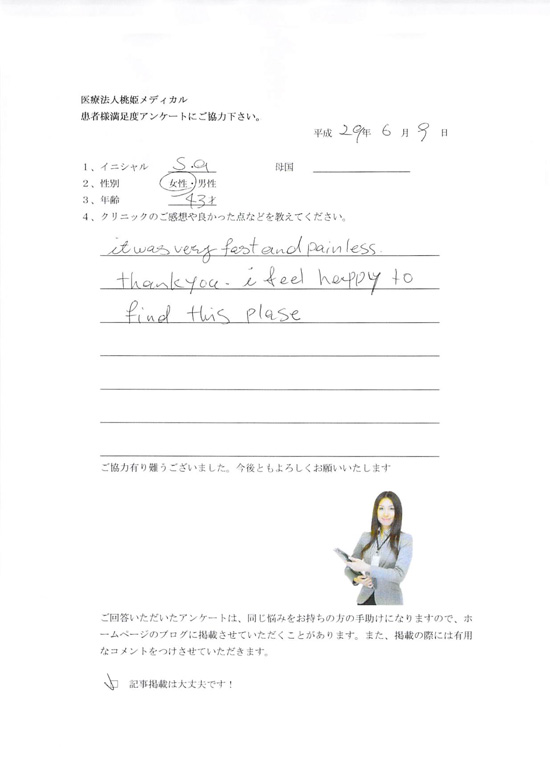 医療法人桃姫メディカル
患者様満足度アンケートにご協力下さい。
平成 29年 6 月 9 日
1、イニシャル S.a 母国
2、性別 女性・男性
3、年齢 43才
4、クリニックのご感想や良かった点などを教えてください。
it was very fast and painless.
thank you. i feel happy to
find this plase
ご協力有り難うございました。今後ともよろしくお願いいたします
ご回答いただいたアンケートは、同じ悩みをお持ちの方の手助けになりますので、ホ
ームページのブログに掲載させていただくことがあります。また、掲載の際には有用
なコメントをつけさせていただきます。
記事掲載は大丈夫です！